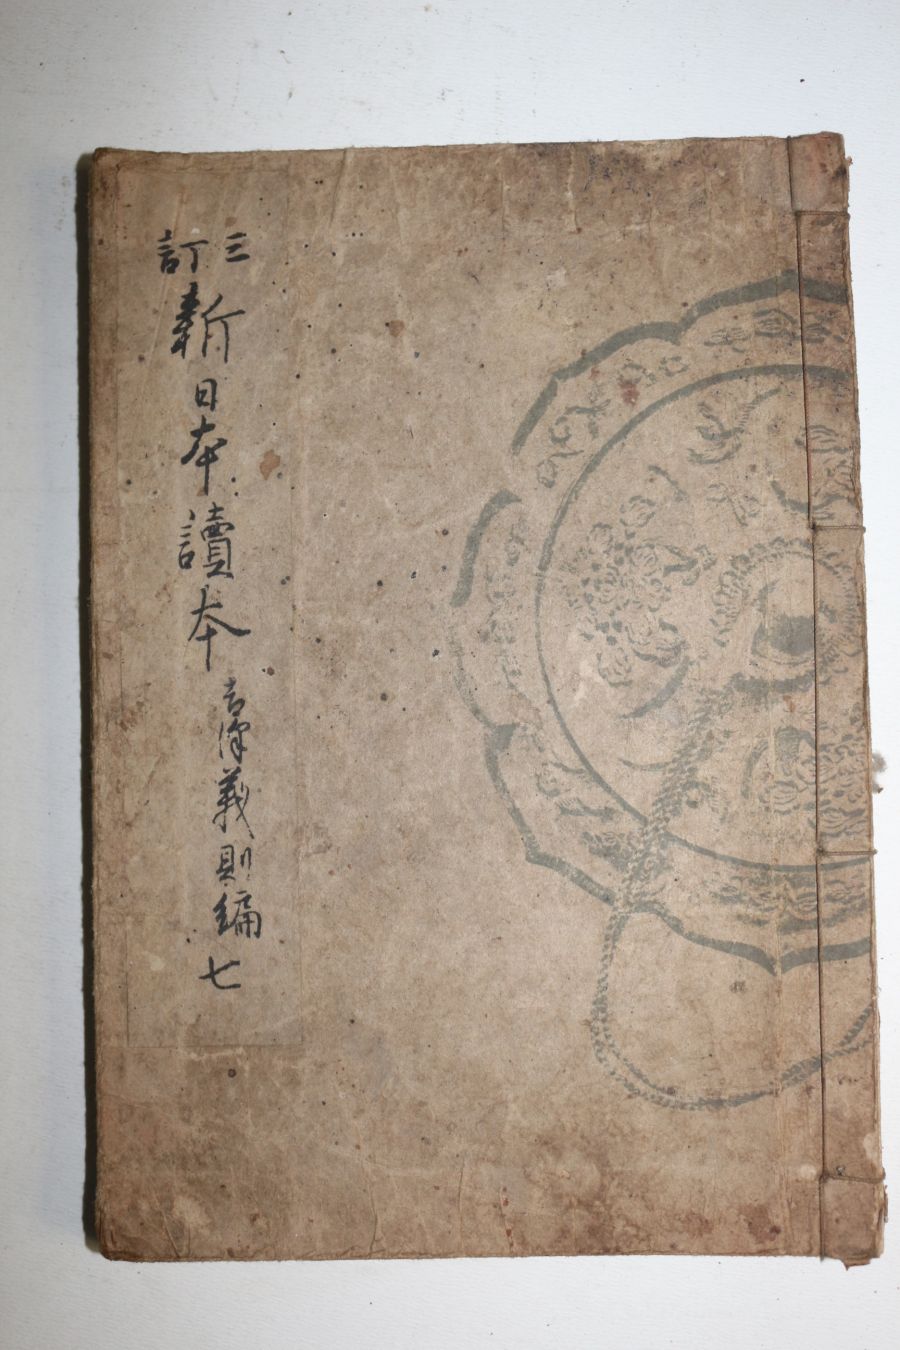 三訂
新日本讀本 吉澤義則編 七